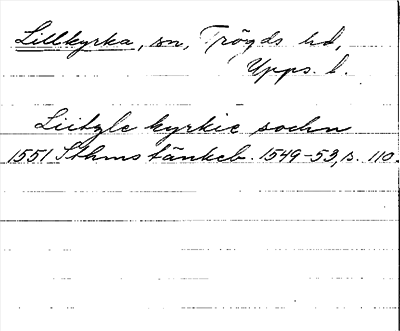 Lillkyrka, sn, Trögds hd,
Upps. l.
Liitzle kyrkie sochn
1551 Sthms tänkeb. 1549-53, s. 110.